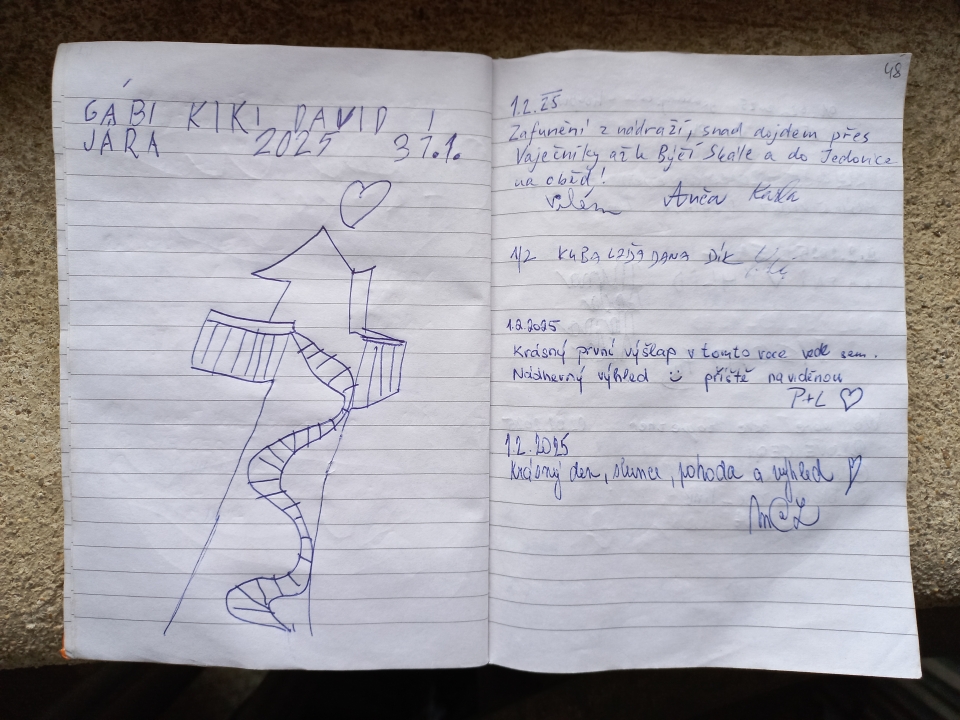 GÁBI KIKI DAVID I
JÁRA 2025 31.1.
48
1.2. 25
Zafunění z nádraží, snad dojdem přes
Vaječníky až k Býčí Skále a do Jedovnice
na oběd!
Vilém Anča Kaka
1/2 KUBA DANA DÍK
1.2.2025
Krásný první výšlap v tomto roce vede sem.
Nádherný výhled příště naviděnou
P+L
1.2.2025
Krásný den, slunce, pohoda a výhled